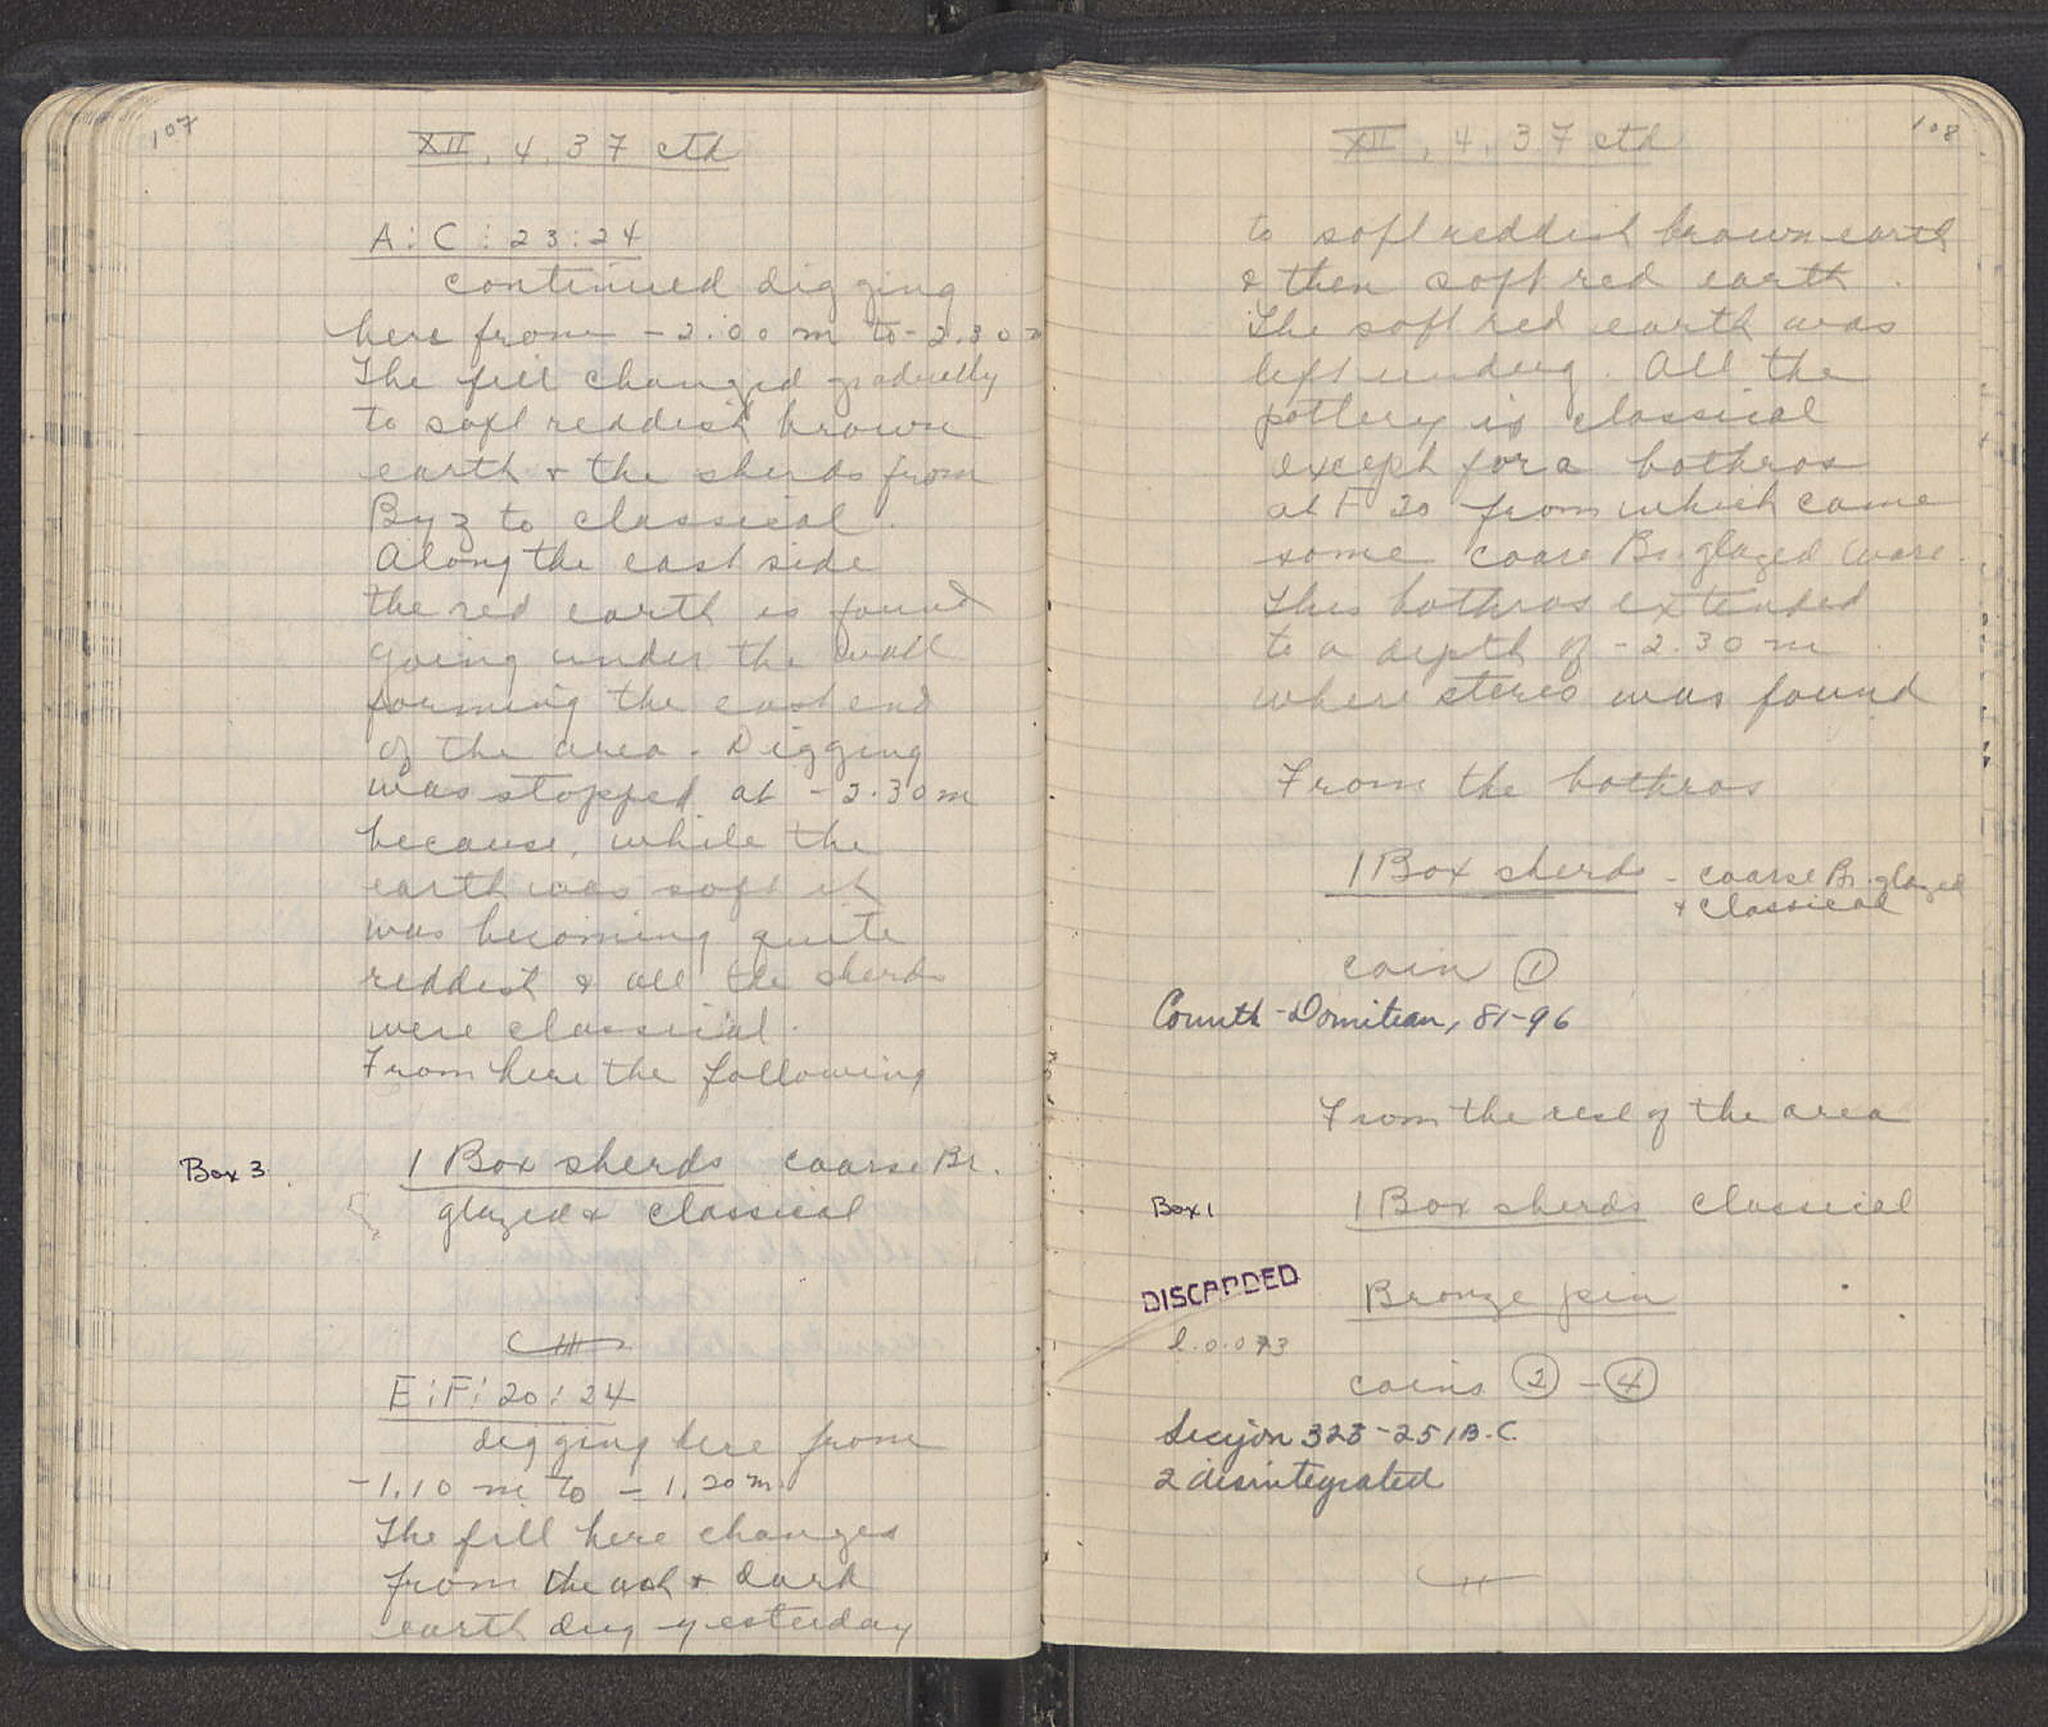 107
XII, 4, 37 ctd
A:C:23:24
continued digging
here from -2.00 m to -2.30 m
The fill changed gradually
to soft reddish brown
earth & the sherds from
Byz to classical.
Along the east side
the red earth is found
going under the wall
forming the east end
of the area. Digging
was stopped at -2.30 m
because, while the
earth was soft it
was becoming quite
reddish & all the sherds
were classical.
From here the following
Box 3.
1 Box sherds coarse Br.
glazed & classical
E:F:20:24
digging here from
-1.10 m to -1.20 m
The fill here changes
from the ash & dark
earth dug yesterday
108
XII, 4, 37 ctd
to soft reddish brown earth
& then soft red earth.
The soft red earth was
left undug. All the
pottery is classical
except for a bothros
at F 20 from which came
some coarse Br. glazed ware.
This bothros extended
to a depth of -2.30 m
where stereo was found
From the bothros
1 Box sherds - coarse Br. glazed
& classical
coin ①
Corinth - Domitian, 81-96
From the rest of the area
Box 1
1 Box sherds classical
DISCARDED
Bronze pin
l. 0.073
coins ② - ④
Sicyon 323-251 B.C.
2 disintegrated